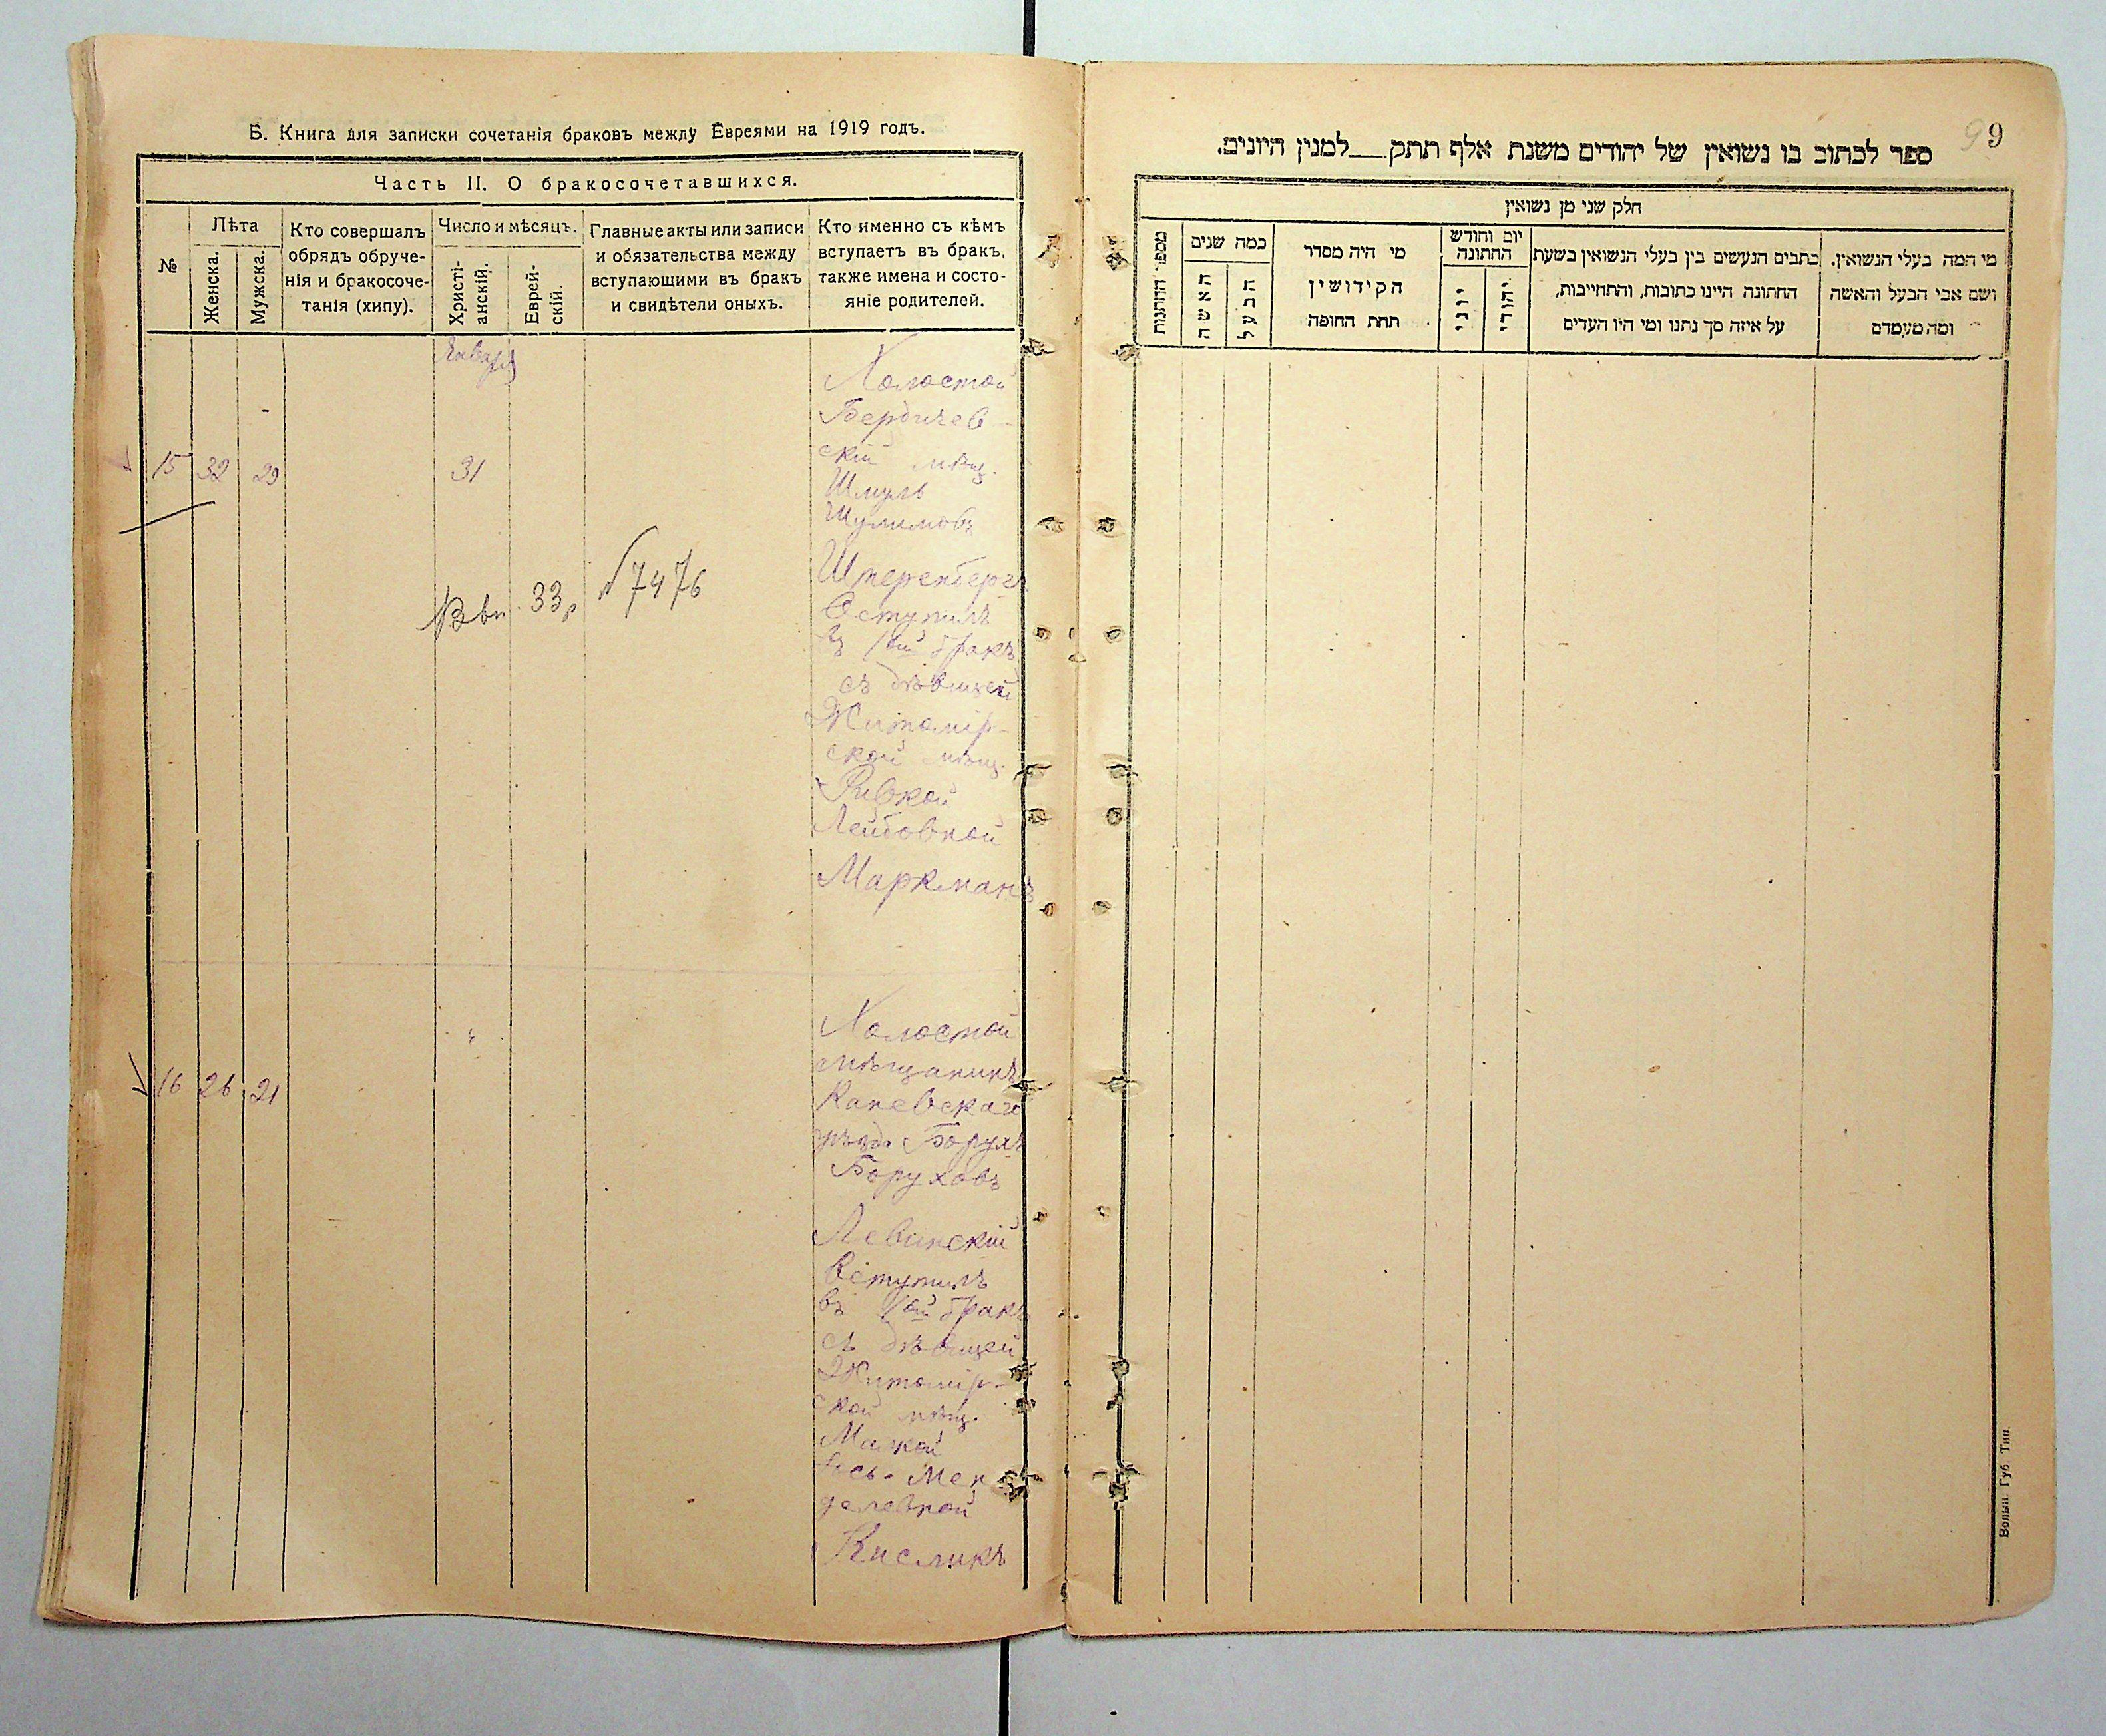 Б. Книга для записки сочетанія браковъ между Евреями на 1919 годъ.
Часть II. О бракосочетавшихся.
№
Лѣта
Женска.
Мужска.
Кто совершалъ
обрядъ обруче-
нія и бракосоче-
танія (хипу).
Число и мѣсяцъ.
Христі-
анскій.
Еврей-
скій.
Главные акты или записи
и обязательства между
вступающими въ бракъ
и свидѣтели оныхъ.
Кто именно съ кѣмъ
вступаетъ въ бракъ,
также имена и состо-
яніе родителей.
Января
15 32 29 31
Холостой
Бердичев-
скій мѣщ.
Шмуль
Шулимовъ
Штеренбергъ
Вступилъ
въ 1ый бракъ
съ дѣвицей
Житомір-
ской мѣщ.
Ривкой
Лейбовной
Маркманъ
33
7476
16 26 21 "
Холостой
мѣщанинъ
Каневскаго
уѣзд. Борухъ
Боруховъ
Левинскій
Вступилъ
въ 1ый бракъ
съ дѣвицей
Житомір-
ской мѣщ.
Малкой
Мен
делевной
Кисликъ
99
ספר לכתוב בו נשואין של יהודים משנת אלף תתק___למנין היונים.
חלק שני מן נשואין
מספר החתונות
כמה שנים
האשה
הבעל
מי היה מסדר
הקידושין
תחת החופה
יום וחודש
החתונה
יוני
יהודי
כתבים הנעשים בין בעלי הנשואין בשעת
החתונה היינו כתובות, והתחייבות,
על איזה סך נתנו ומי היו העדים
מי המה בעלי הנשואין.
ושם אבי הבעל והאשה
ומה מעמדם
Волын. Губ. Тип.